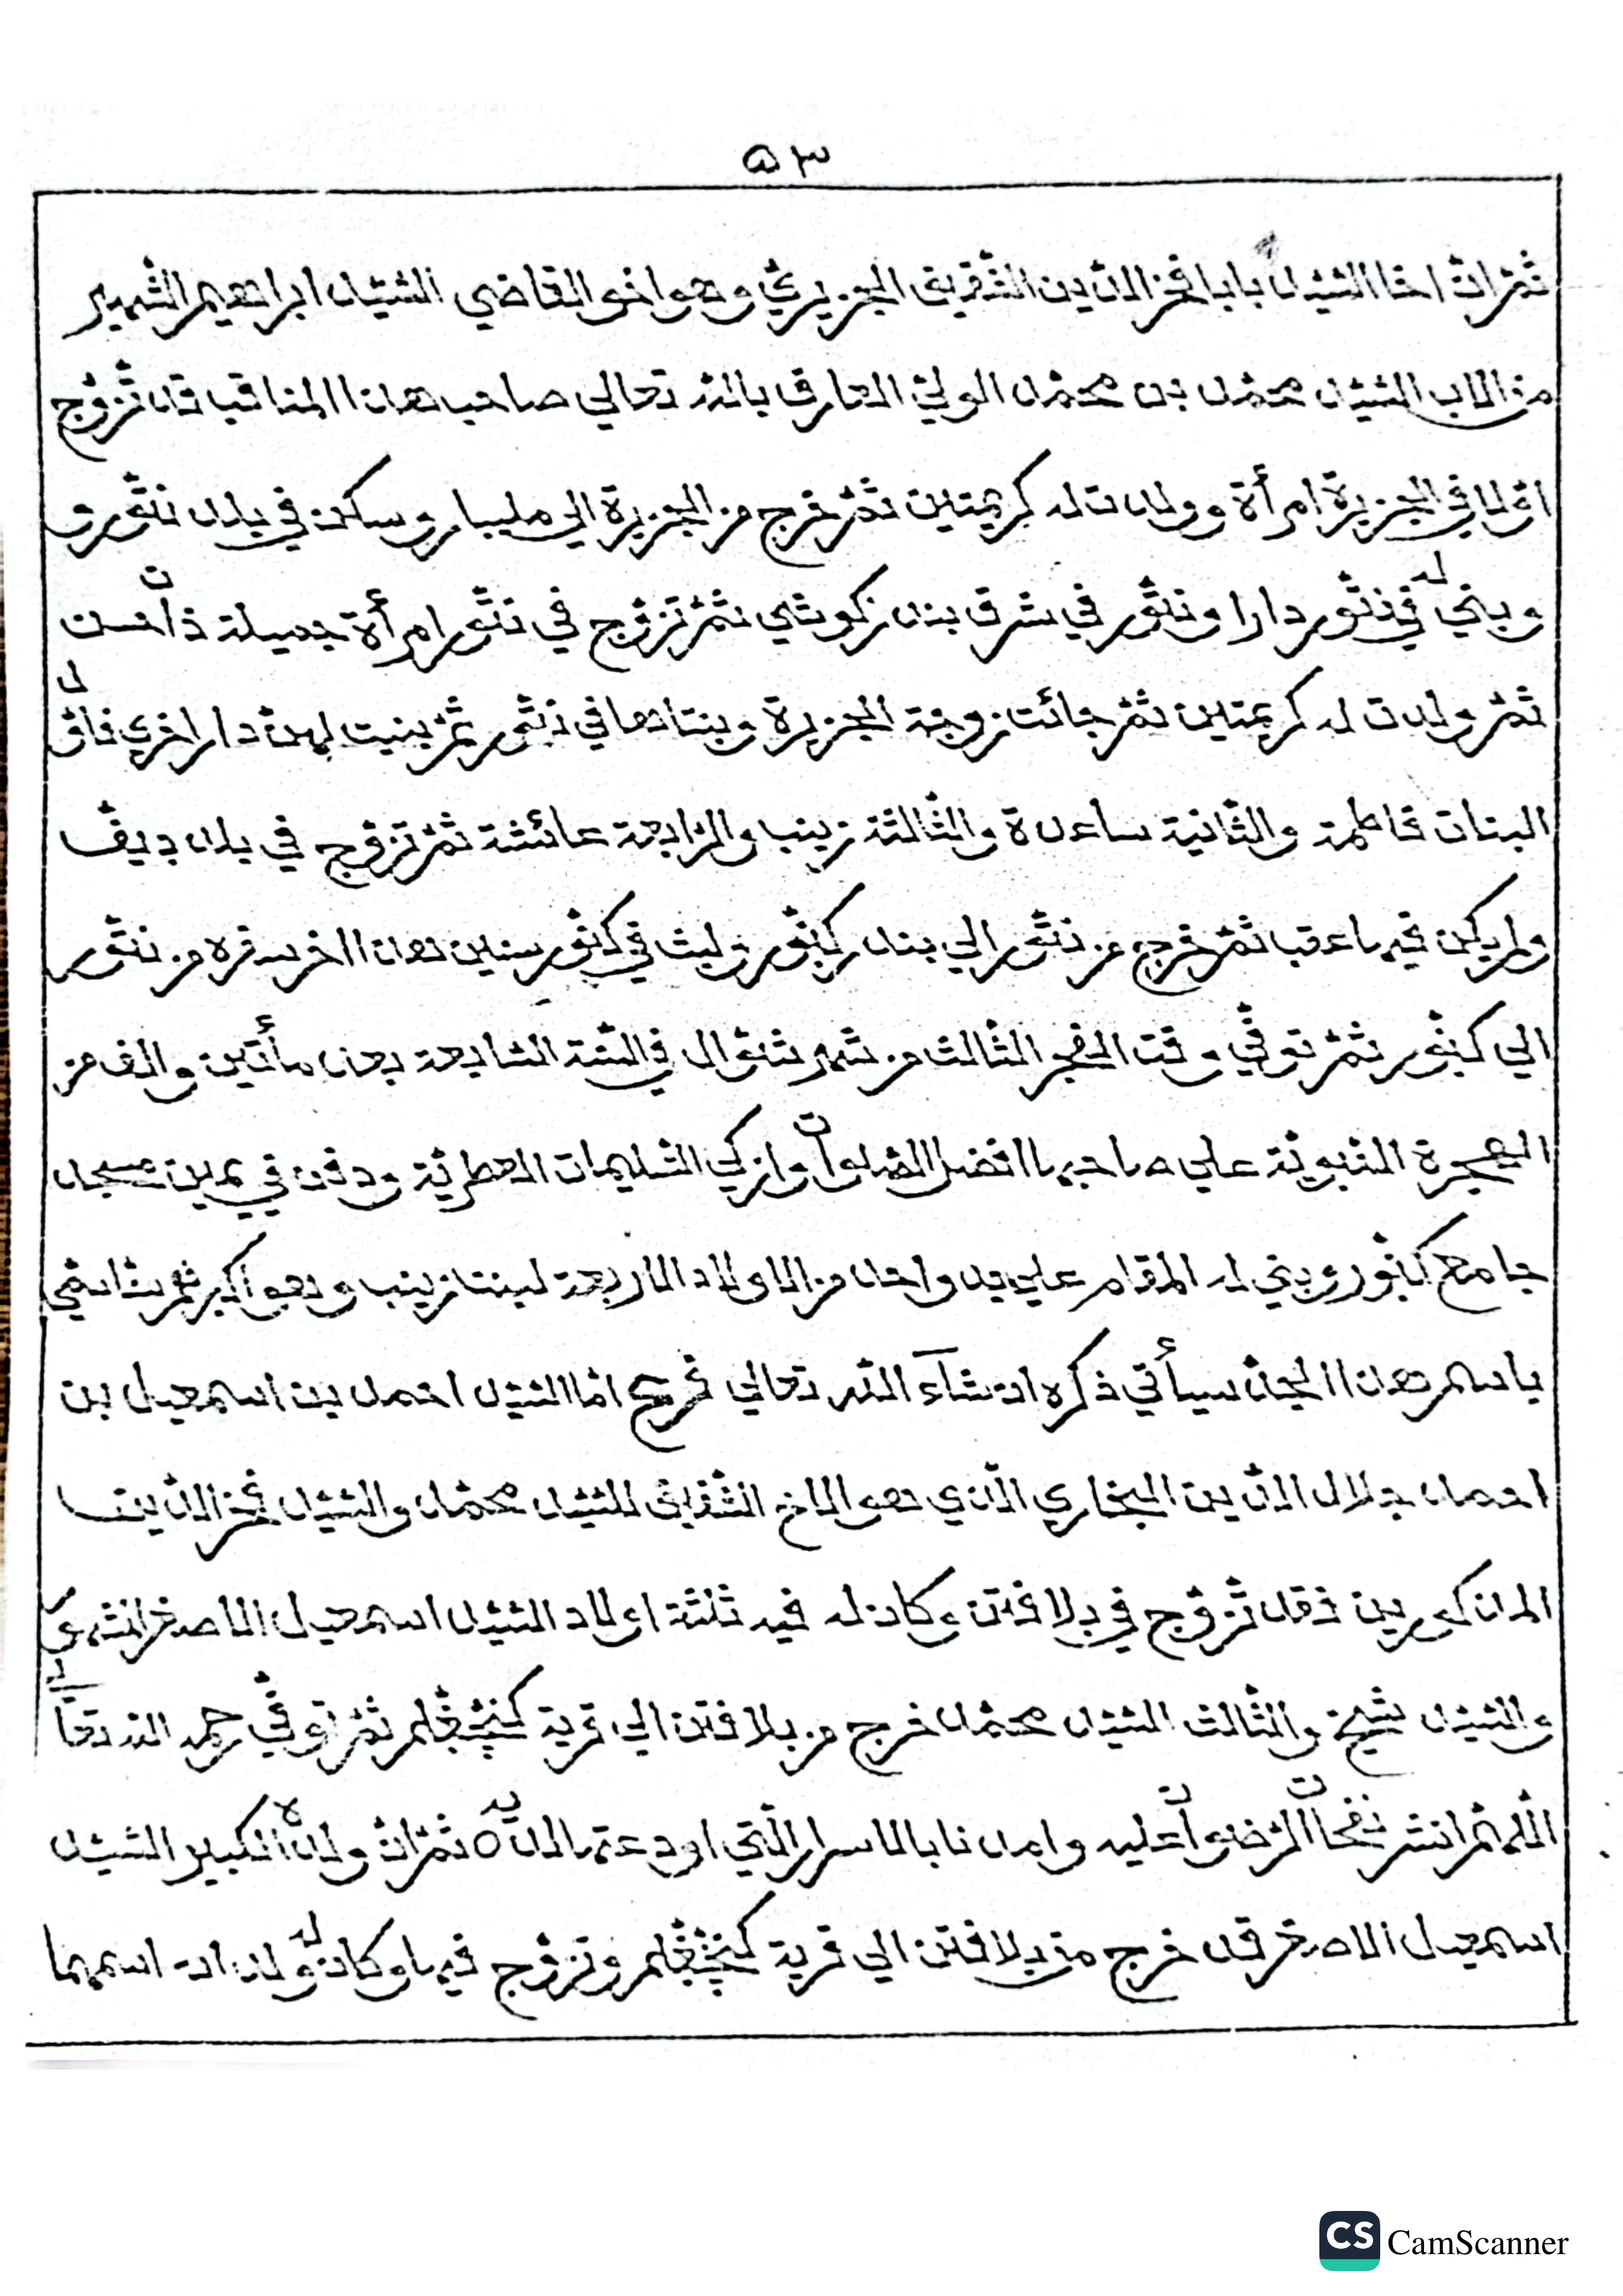 ٥٣
ثمّ انّ اخا السّيّد بابا فخر الدّين الشّقيق الجزيريّ وهو اخو القاضي السّيّد ابراهيم الشّهير
من الاب السّيّد محمّد بن محمّد الوليّ العارف بالله تعالي صاحب هذا المناقب قد تزوّج
اوّلا في الجزيرة امرأة وولدت له كريمتين ثمّ خرج من الجزيرة الي مليبار وسكن في بلد ننّور و
وبني له في ننّور دارا وننّور في شرق بندر كوشي ثمّ تزوّج في ننّور امرأة جميلة ذات حسن
ثمّ ولدت له كريمتين ثمّ جائت زوجة الجزيرة وبنتاها في ننّور ثمّ بنيت لهنّ دار اخري فاوّل
البنات فاطمة والثّانية ساعدة والثّالثة زينب والرّابعة عائشة ثمّ تزوّج في بلد ديفّ
ولم يكن فيها عقب ثمّ خرج من ننّور الي بندر كنّور ولبث في كنّور سنين هذا اخر سفره من ننّور
الي كنّور ثمّ توفّي وقت الفجر الثّالث من شهر شوّال في السّنة السّابعة بعد مأتين والف من
الهجرة النّبويّة علي صاحبها افضل الصّلوات وازكي التّسليمات العطريّة ودفن في يمين مسجد
جامع كنّور وبني له المقام علي يد واحد من الاولاد الاربعة لبنتا زينب وهو اكبرهم سنّا سمّي
باسم هذا الجدّ سيأتي ذكره ان شآء الله تعالي فرع امّا السّيّد احمد بن اسمعيل بن
احمد جلال الدّين البخاري الّذي هو الاخ الشّقيق للسّيّد محمّد والسّيّد فخر الدّين
المذكورين فقد تزوّج في بلافتن وكان له فيه ثلثة اولاد السّيّد اسمعيل الاصغر
والسّيّد شيخ والثّالث السّيّد محمّد خرج من بلافتن الي قرية ثمّ توفّي رحمه الله تعالي
اللّهمّ انشر نفحات الرّضوان عليه وامدنا بالاسرار الّتي اودعتها لديه ثمّ انّ ولده الكبير السّيّد
اسمعيل الاصغر قد خرج من بلافتن الي قرية وتزوّج فيها وكان له ولدان اسمهما
CS CamScanner